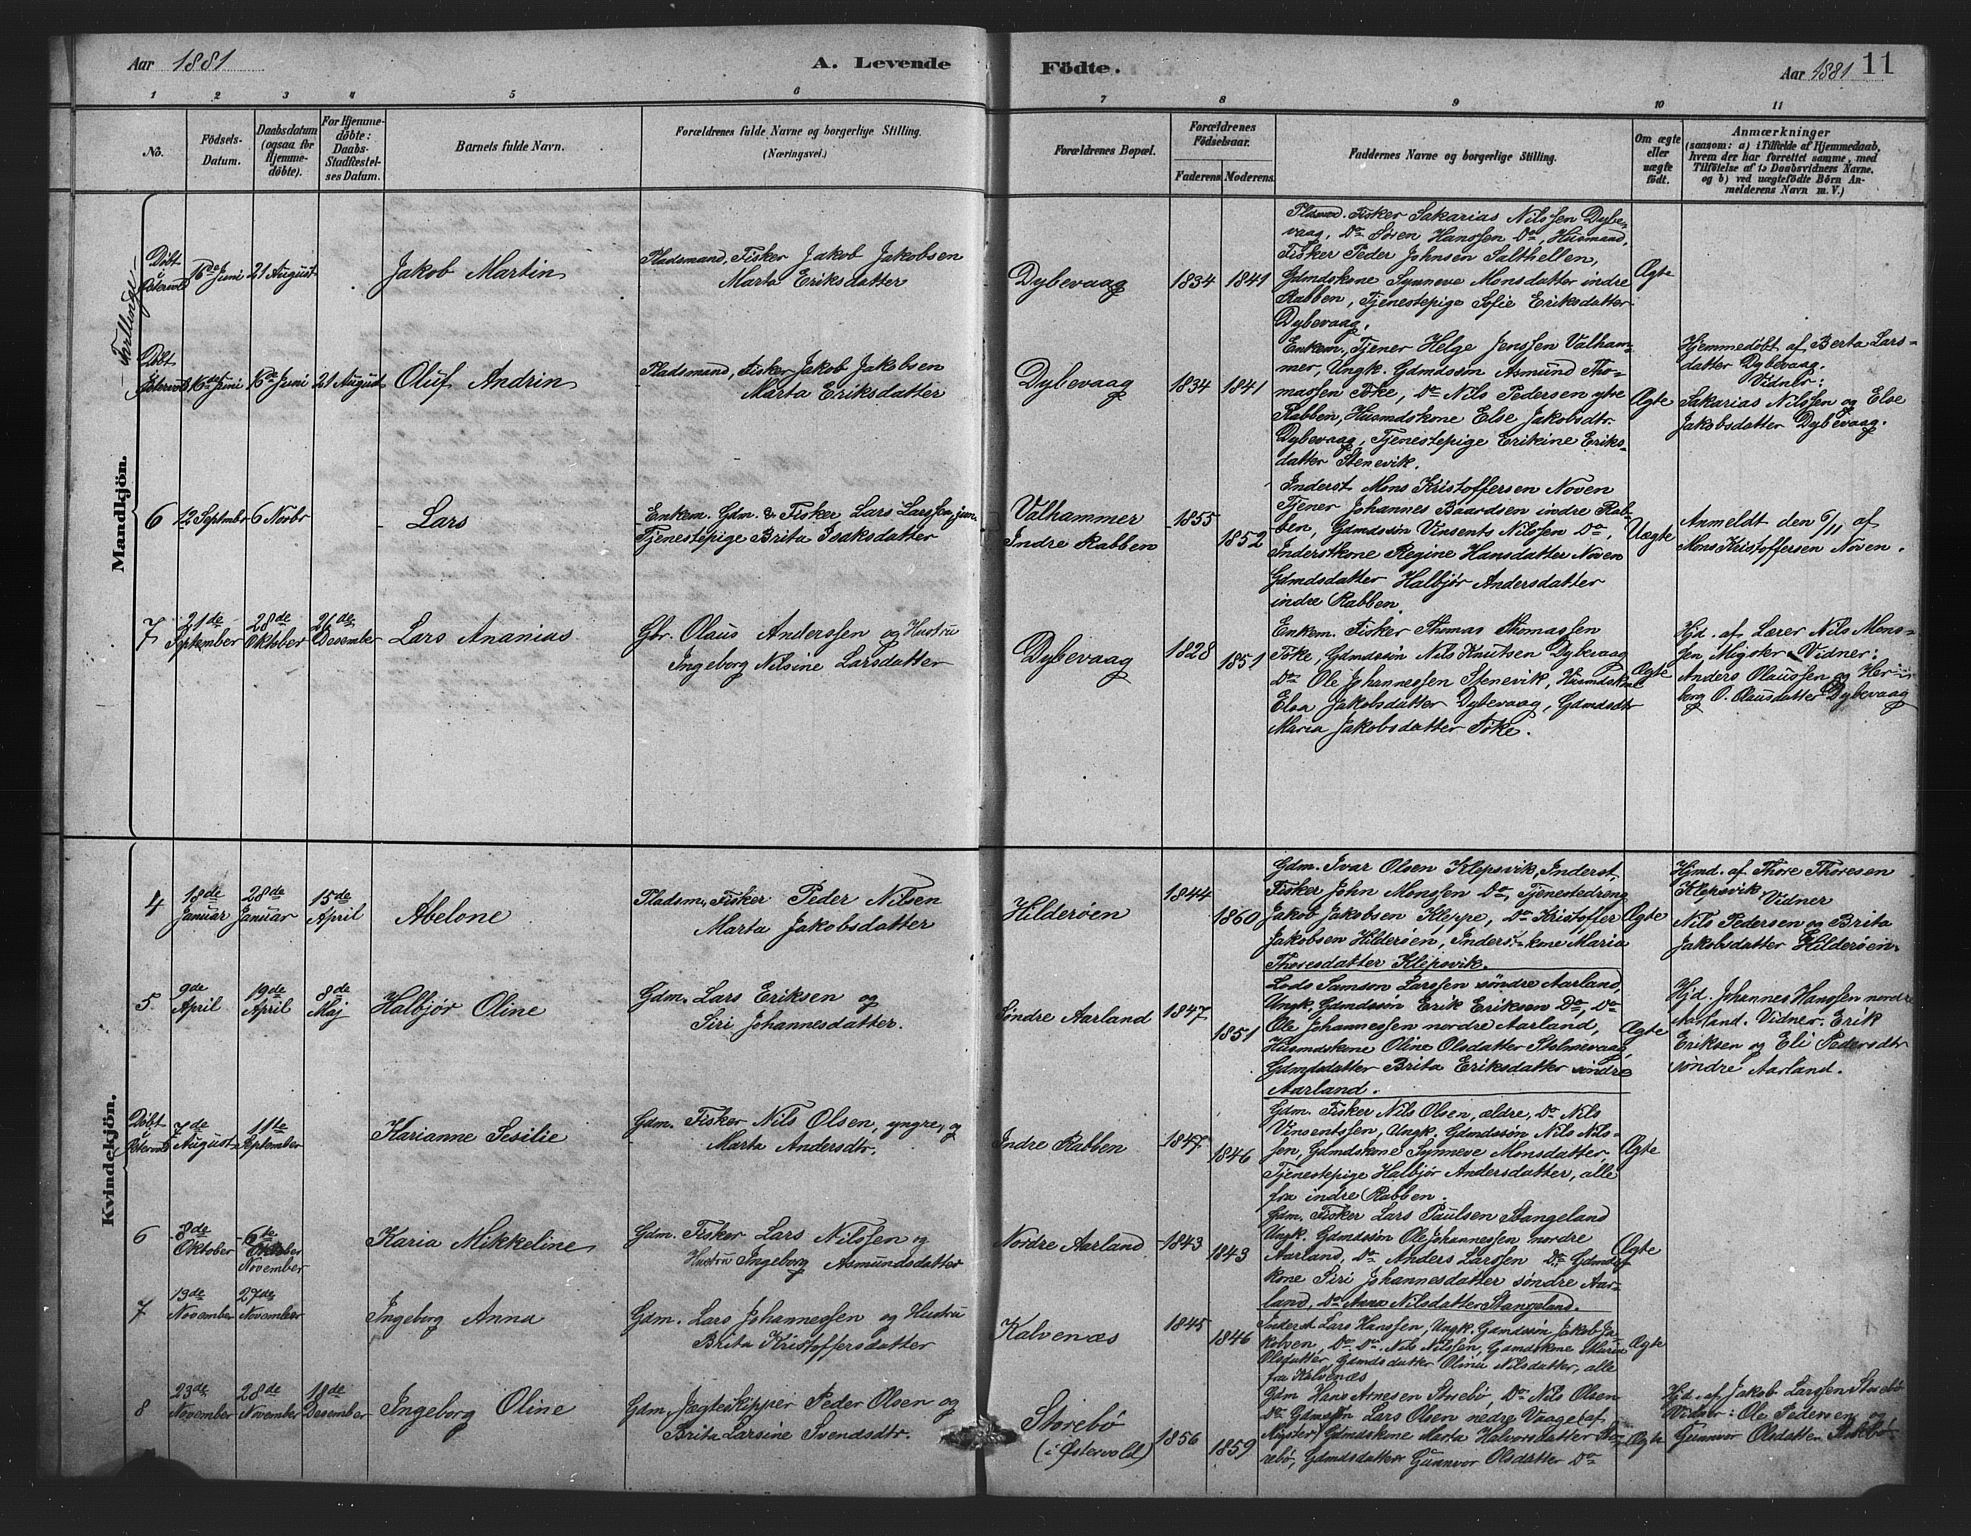 Aar 1881
A. Levende
Födte.
Aar 1881
11
1 2 3 4 5 6 7 8 9 10 11
No.
Födsels-
Datum.
Daabsdatum
(ogsaa for
Hjemme-
døbte).
For Hjemme-
døbte:
Daabs-
Stadfæstel-
ses Datum.
Barnets fulde Navn.
Forældrenes fulde Navne og borgerlige Stilling.
(Næringsvei.)
Forældrenes Bopæl.
Forældrenes
Födselsaar.
Faderens.
Moderens.
Faddernes Navne og borgerlige Stilling.
Om ægte
eller
uægte
födt.
Anmærkninger
(saasom: a) i Tilfælde af Hjemmedaab,
hvem der har forrettet samme, med
Tilföielse af to Daabsvidners Navne.
og b) ved uægtefödte Börn An-
melderens Navn m. V.)
Mandkjön.
Tvillinge
Döbt
i
Østervold
16de Juni
21 August
Jakob Martin
Pladsmand, Fisker Jakob Jakobsen
Marta Eriksdatter
Dybevaag
1834
1841
Pladsmd. Fisker Sakarias Nilssen Dybe-
vaag, Do Søren Hanssen Do, Husmand,
Fisker Peder Johnsen Salthellen,
Gdmdskone Synneve Monsdatter indre
Rabben, Tjenestepige Sofie Eriksdatter
Dybevaag.
Ægte
Döbt
i Østervold
16de Juni
16de Juni
21 August
Oluf Andrin
Pladsmand, Fisker Jakob Jakobsen
Marta Eriksdatter
Dybevaag
1834
1841
Enkem. Tjener Helge Jenssen Valham-
mer, Ungk. Gdmdssøn Asmund Tho-
massen Föke, Do Nils Pedersen ytre
Rabben, Husmdskone Else Jakobsdtr.
Dybevaag, Tjenestepige Erikine Eriks-
datter Stenevik.
Ægte
Hjemmedöbt af Berta Lars-
datter Dybevaag.
Vidner:
Sakarias Nilssen og Else
Jakobsdatter Dybevaag.
6
12 Septmbr
6 Novbr
Lars
Enkem. Gdm. & Fisker Lars Larssen, jun.
Tjenestepige Brita Isaksdatter
Valhammer
Indre Rabben
1855
1852
Inderst Mons Kristoffersen Noven
Tjener Johannes Baardsen indre Rab-
ben, Gdmdssøn Vinsents Nilssen Do,
Inderstkone Regine Hansdatter Noven
Gdmdsdatter Halbjør Andersdatter
indre Rabben.
Uægte
Anmeldt den 6/11 af
Mons Kristoffersen Noven.
7
21de
September
28de
Oktober
26de
Desember
Lars Ananias
Gbr. Olaus Anderssen og Hustru
Ingeborg Nilsine Larsdatter
Dybevaag
1828
1851
Enkem. Fisker Thomas Thomassen
Föke, Gdmdssøn Nils Knutsen Dybevaag
Do Ole Johannessen Stenevik, Husmdskone
Elsa Jakobsdatter Dybevaag, Gdmdsdtr
Maria Jakobsdatter Föke.
Ægte
Hjd. af Lærer Nils Mons-
sen, Vidner:
Anders Olaussen og Her-
borg O. Olausdatter Dybevaag
Kvindekjön.
4
18de
Januar
28de
Januar
15de
April
Abelone
Pladsm, Fisker Peder Nilsen
Marta Jakobsdatter
Hilderöen
1844
1860
Gdm. Ivar Olsen Klepsvik, Inderst,
Fisker John Monssen Do, Tjenestedreng
Jakob Jakobsen Kleppe, Do Kristoffer
Jakobsen Hilderöen, Inderstkone Maria
Thoresdatter Klepsvik.
Ægte
Hjmd. af Thore Thoresen
Klepsvik
Vidner
Nils Pedersen og Brita
Jakobsdatter Hilderöen.
5
9de
April
19de
April
8de
Maj
Halbjør Oline
Gdm. Lars Eriksen og
Siri Johannesdatter.
Søndre Aarland
1847
1851
Lods Samson Larssen søndre Aarland,
Ungk. Gdmdssøn Erik Eriksen Do, Do
Ole Johannessen nordre Aarland,
Husmdskone Oline Olsdatter Stolmevaag,
Gdmdsdatter Brita Eriksdatter søndre
Aarland.
Ægte
Hjd. Johannes Hanssen nordre
Aarland. Vidner: Erik
Eriksen og Eli Pedersdtr
søndre Aarland.
Döbt
i
Østervold
7de
August
11te
September
Karianne Sesilie
Gdm. Fisker Nils Olsen, yngre, og
Marta Andersdtr.
Indre Rabben
1847
1846
Gdm. Fisker Nils Olsen, ældre, Do Nils
Vinsentssen, Ungk. Gdmdssøn Nils Nils-
sen, Gdmdskone Synneve Monsdatter,
Tjenestepige Halbjør Andersdatter, alle
fra indre Rabben.
Ægte
6
8de
Oktober
6te
Oktober
November
Karia Mikkeline
Gdm. Fisker Lars Nilssen og
Hustru Ingeborg Asmundsdatter
Nordre Aarland
1843
1843
Gdm. Fisker Lars Paulsen Stangeland
Ungk. Gdmdssøn Ole Johannessen nordre
Aarland, Do Anders Larssen Do, Gdmds-
kone Siri Johannesdatter søndre Aar-
land, Do Anna Nilsdatter Stangeland.
Ægte
7
13de
November
27de
November
Ingeborg Anna
Gdm. Lars Johannessen og Hustru
Brita Kristoffersdatter
Kalvenæs
1845
1846
Inderst Lars Hanssen, Ungk. Gdmdssøn Jakob Ja-
kobsen, Do. Do. Nils Nilssen, Gdmdskone Maria
Olsdatter, Gdmdsdatter Olina Nilsdatter, alle
fra Kalvenæs
Ægte
8
23de
November
28de
November
18de
Desember
Ingeborg Oline
Gdm, Jægteskipper Peder Olsen og
Brita Larsine Svendsdtr.
Storebø
(i Østervold)
1856
1859
Gdm Hans Arnesen Storebø, Do Nils Olsen
Do Gdmssøn Lars Olsen nedre Vaage (af
Møster) Gdmdskone Marta Halvorsdatter Sto-
rebø, Gdmdsdatter Gunnvor Olsdatter Do
Ægte
Hjd. af Jakob Larssen Storebø
Vidner: Ole Pedersen og
Gunnvor Olsdatter Storebø.